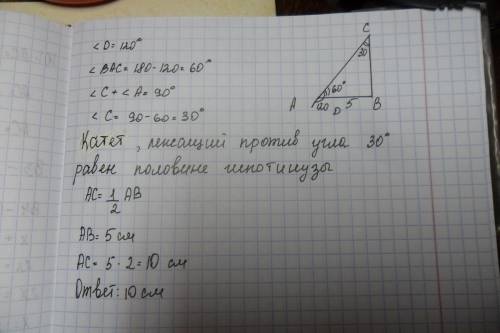 ∠D = 120°
∠BAC = 180 - 120 = 60°
∠C + ∠A = 90°
∠C = 90 - 60 = 30°
Катет, лежащий против угла 30°
равен половине гипотинузы
AC = 1/2 AB
AB = 5 см
AC = 5 · 2 = 10 см
Ответ: 10 см
C
30°
60°
A
D
5
B